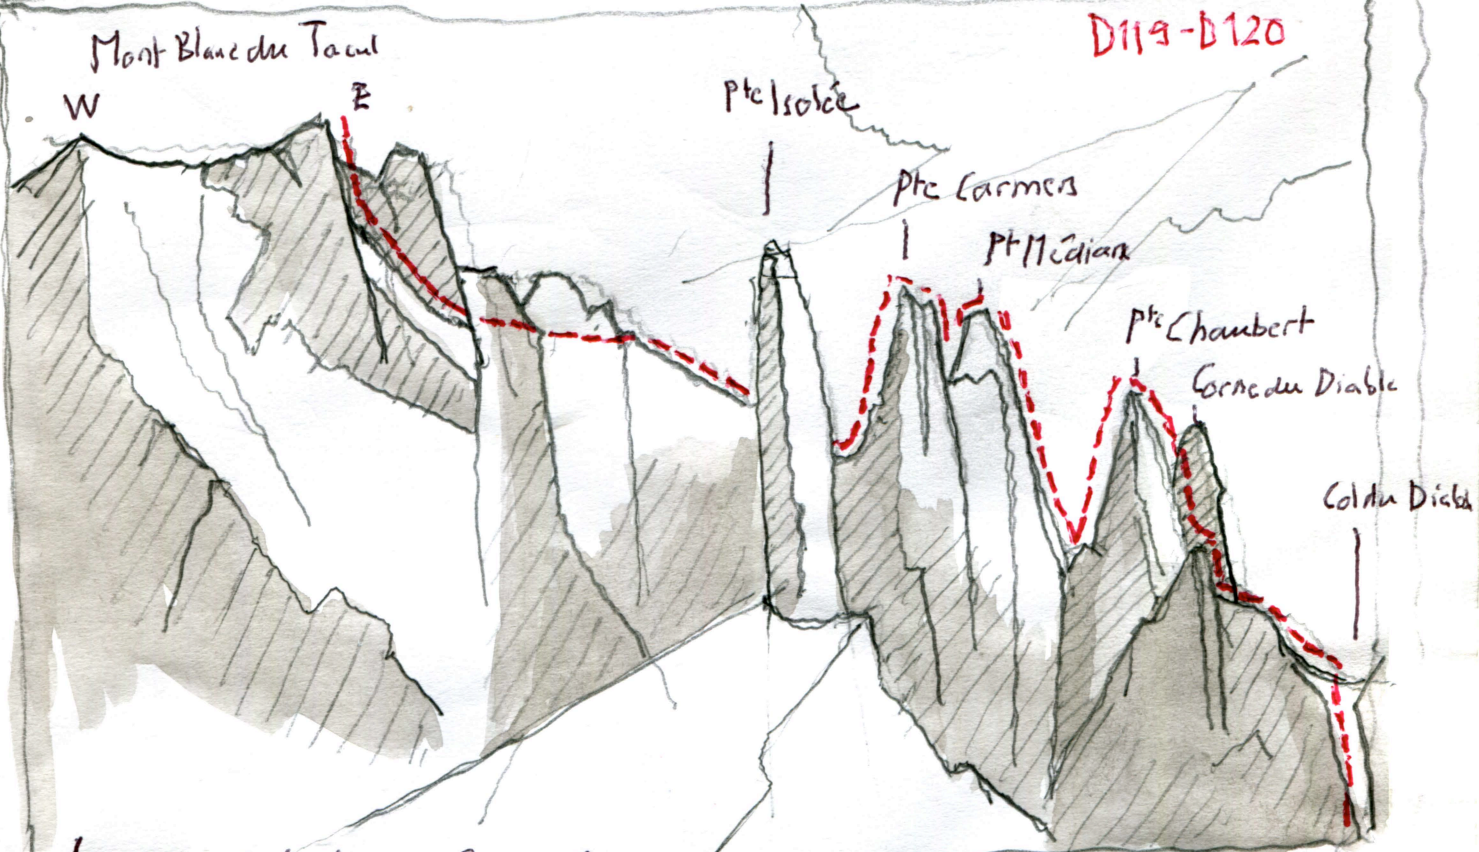 D119-D120
Mont Blanc du Tacul
W
E
Pte Isolée
Pte Carmen
Pt Médiane
Pte Chaubert
Corne du Diable
Col du Diable